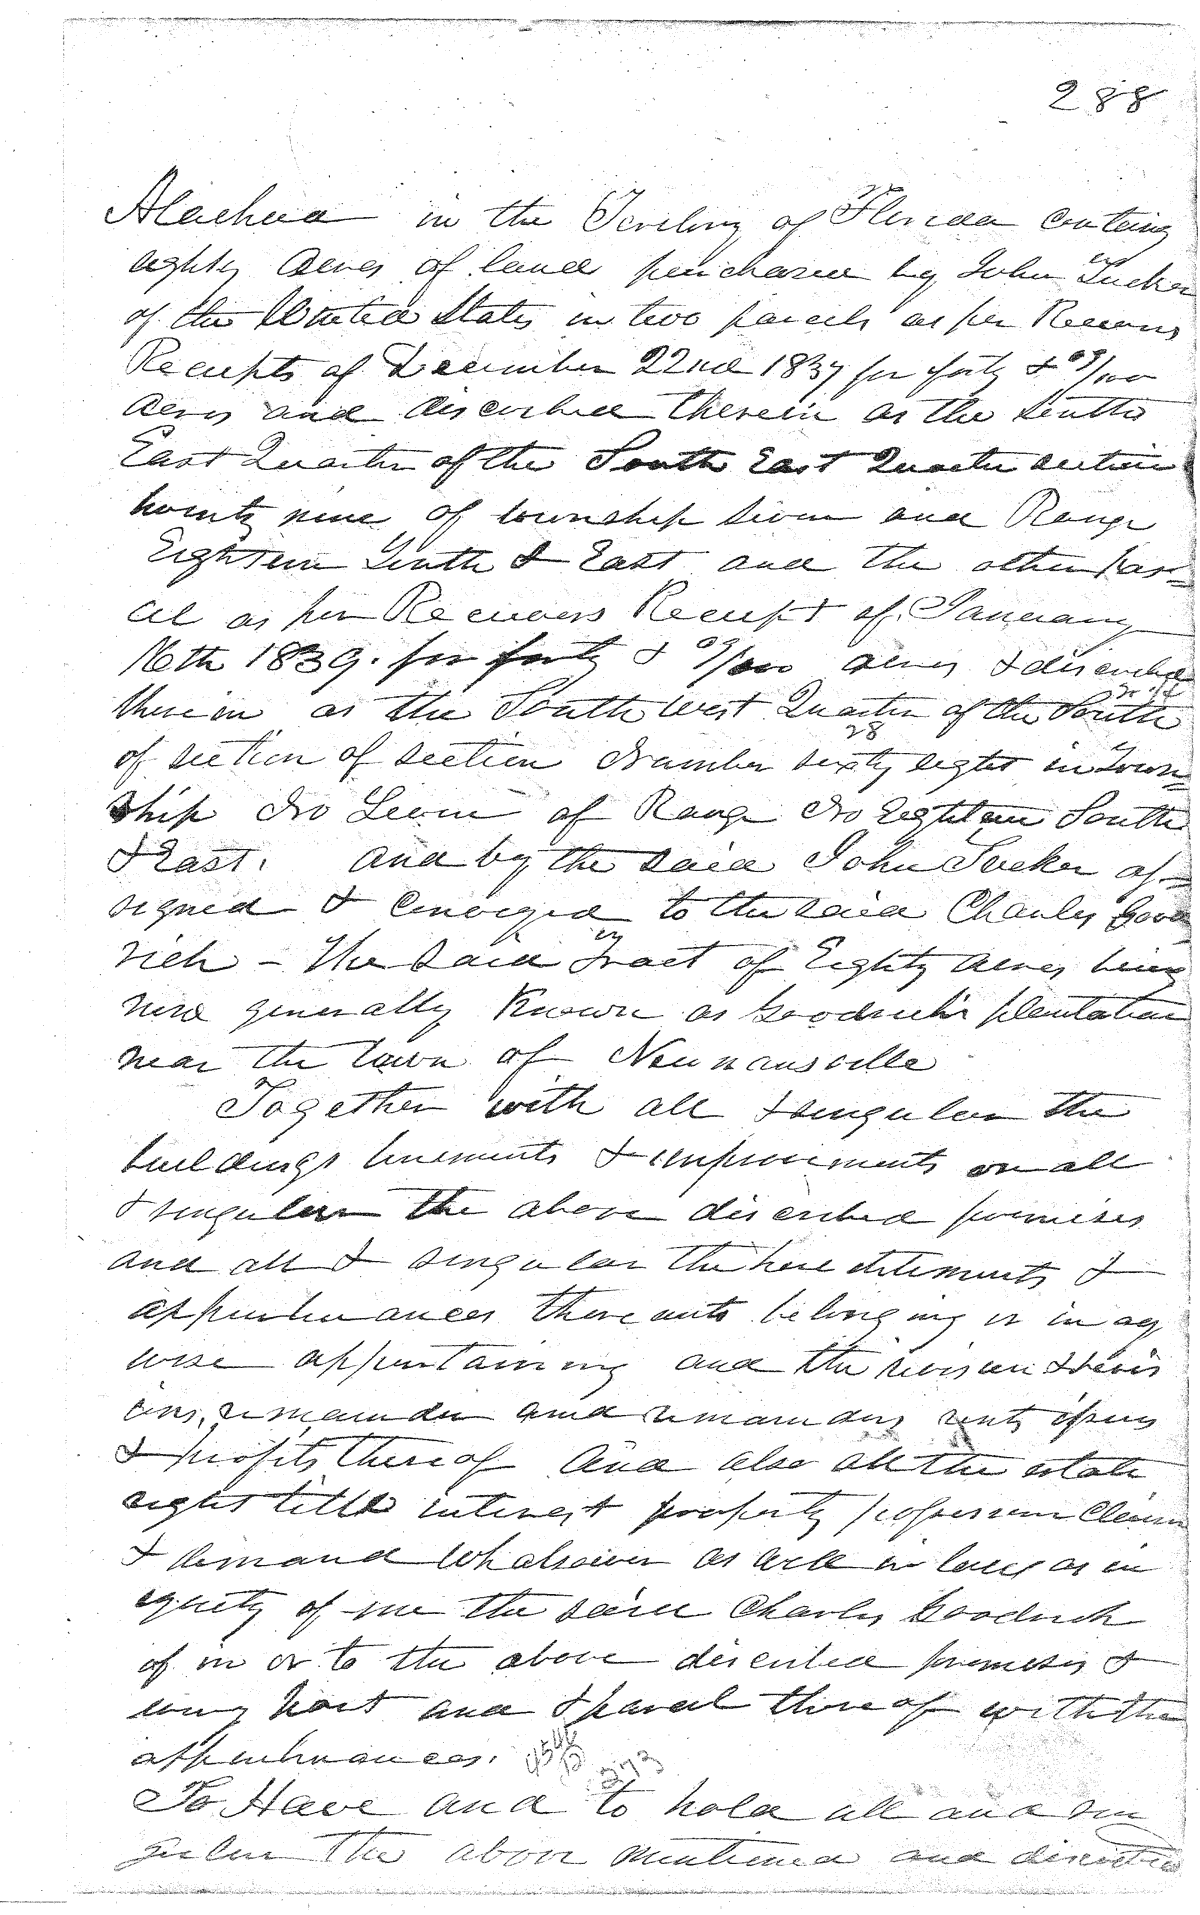 288
Alachua in the Territory of Florida containg
eighty Acres of land purchased by John Tucker
of the United States in two parcels as per Receivers
Receipts of December 22nd 1837 for forty & 09/100
Acres and described therein as the South
East Quarter of the South East Quarter section
twenty nine of township seven and Range
Eighteen South & East and the other par=
cel as per Receivers Receipt of January
16th 1839. for forty & 09/100 acres & described
therein as the South West Quarter of the South
of section of section Number sixty eight in Town=
28
ship No Seven of Range No Eighteen South
& East. And by the said John Tucker as=
signed & conveyed to the said Charles Good
rich - The said Tract of Eighty Acres being
now generally Known as Goodrich's plantation
near the town of Newnansville
Together with all & singular the
buildings tenements & improvements on all
& singular the above described premises
and all & singular the hereditements &
appurtenances thereunto belonging or in any
wise appertaining and the revision & revis
ions, remainder and remainders rents issues
& profits thereof And also all the estate
right title interest property possession Claim
& demand Whatsoever as well in law as in
equity of me the said Charles Goodrich
of in or to the above described premises &
every part and & parcel thereof with the
appurtenances.
273
To Have and to hold all and sin
gular the above mentioned and described